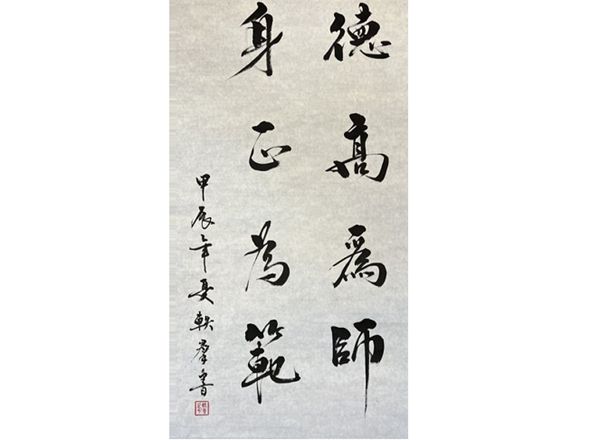 德高爲師
身正為範
甲辰年夏軼群書